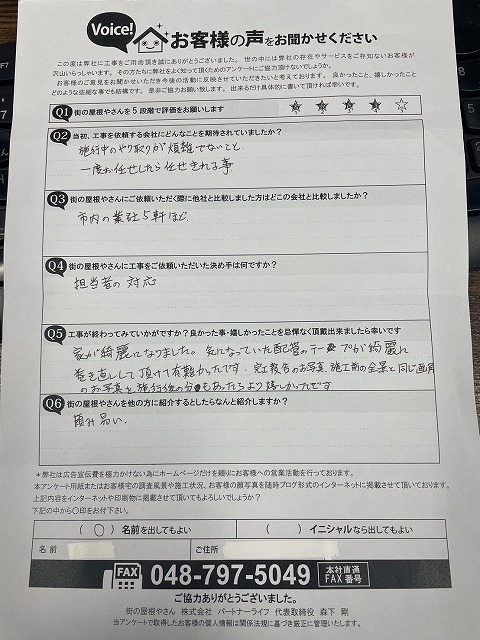 Voice!
お客様の声をお聞かせください
この度は弊社に工事をご用命頂き誠にありがとうございました。世の中には弊社の存在やサービスをご存知ないお客様が
沢山いらっしゃいます。その方たちに弊社をよく知って頂くためのアンケートにご協力頂けないでしょうか。
お客様のご意見をお聞かせいただき今後の活動に反映させていただきたいと考えております。良かったこと、嬉しかったこと
どのような些細な事でも結構です。是非ご協力お願い致します。出来るだけ具体的に書いて頂ければ幸いです。
Q1 街の屋根やさんを5段階で評価をお願いします
Q2 当初、工事を依頼する会社にどんなことを期待されていましたか?
施行中のやり取りが煩雑でないこと
一度お任せしたら任せきれる事
Q3 街の屋根やさんにご依頼いただく際に他社と比較しました方はどこの会社と比較しましたか?
市内の業社5軒ほど
Q4 街の屋根やさんに工事をご依頼いただいた決め手は何ですか?
担当者の対応
Q5 工事が終わってみていかがですか?良かった事・嬉しかったことを忌憚なく頂戴出来ましたら幸いです
家が綺麗になりました。気になっていた配管のテープが綺麗に
巻き直しして頂けて有難かったです。完工報告のお写真、施工前の全景と同じ画角
のお写真と施行後の分もあったらより嬉しかったです
Q6 街の屋根やさんを他の方に紹介するとしたらなんと紹介しますか?
頼み易い.
*弊社は広告宣伝費を極力かけない為にホームページだけを頼りにお客様への営業活動を行っております。
本アンケート用紙またはお客様宅の調査風景や施工状況、お客様の顔写真を随時ブログ形式のインターネットに掲載させて頂いております。
上記内容をインターネットや印刷物に掲載させて頂いてもよろしいでしょうか?
下記の中から〇印をお付下さい。
( ○ ) 名前を出してもよい ( ) イニシャルなら出してもよい
名前 ご住所
FAX 048-797-5049 本社直通 FAX番号
ご協力ありがとうございました。
街の屋根やさん 株式会社 パートナーライフ 代表取締役 森下 剛
当アンケートで取得したお客様の個人情報は関係法規に基づき厳正に管理いたします。